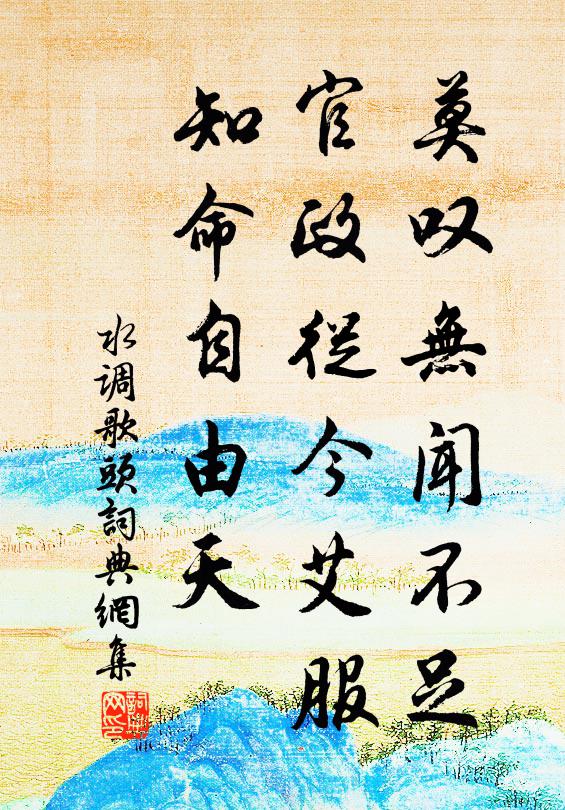 莫叹無闻不足
官政從今艾服
知命自由天
水调歌頭詞典網集